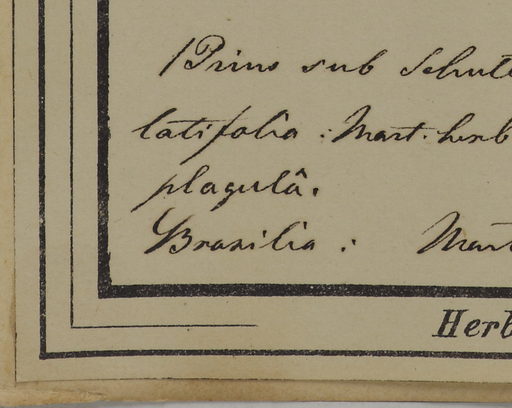 Prius sub Schut
latifolia. Mart. herb
plagulâ.
Brasilia. Mart
Herb